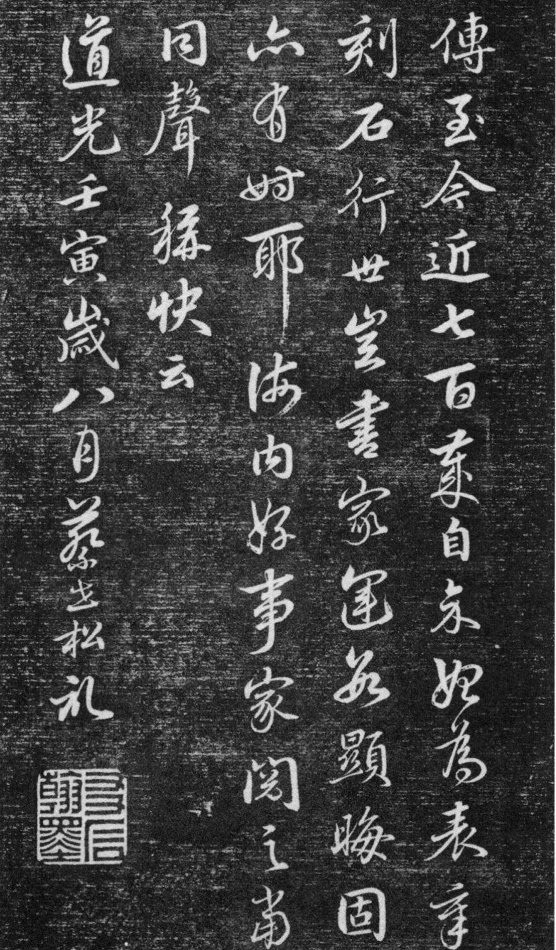 傳至今近七百歲自余始為表章
刻石行世豈書家運數顯晦固
亦有時耶海内好事家閱之當
同聲稱快云
道光壬寅歲八月蔡世松札
友石
翰墨